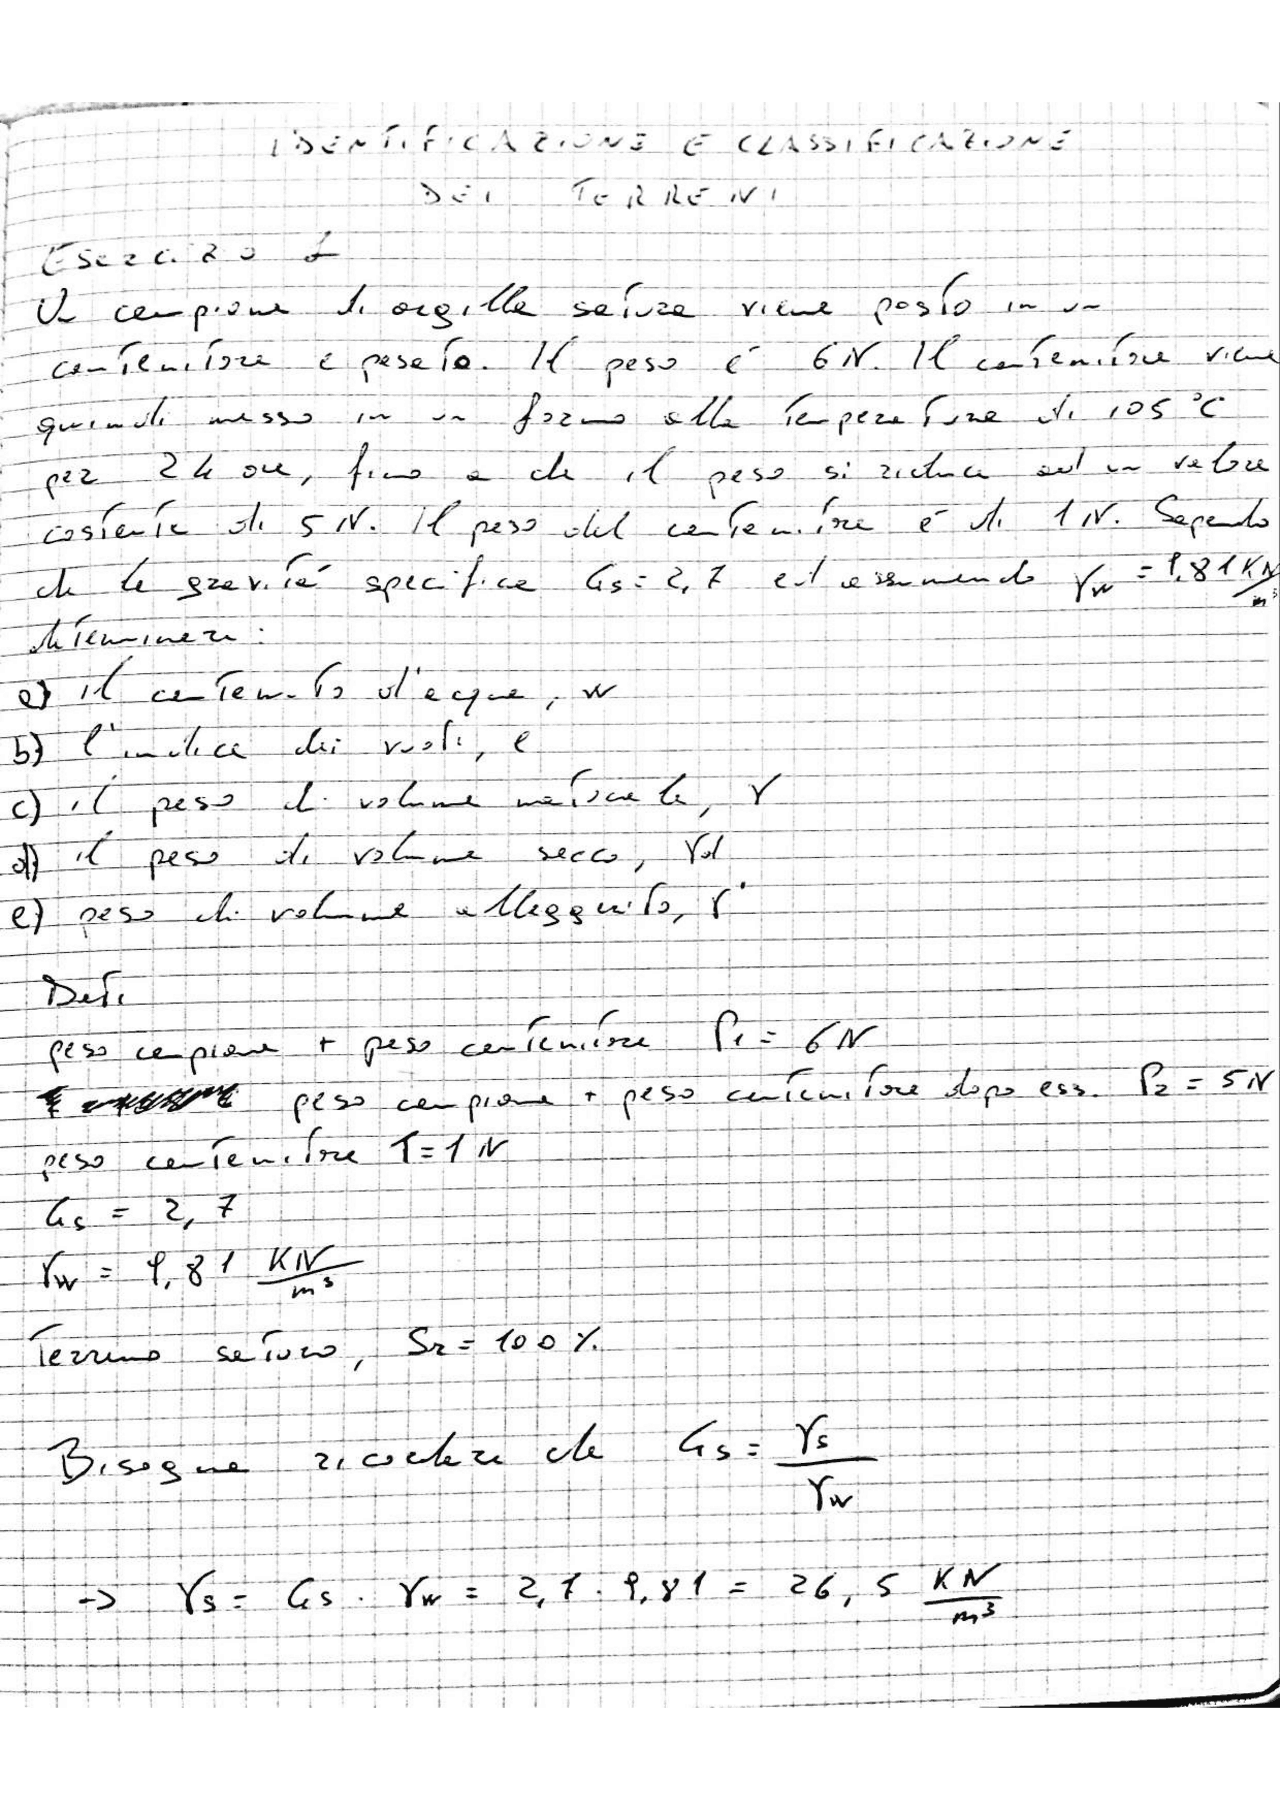 IDENTIFICAZIONE E CLASSIFICAZIONE
DEI TERRENI
Esercizio 1
Un campione di argilla satura viene posto in un
contenitore e pesato. Il peso è 6N. Il contenitore viene
quindi messo in un forno alla temperatura di 105 °C
per 24 ore, fino a che il peso si riduce ad un valore
costante di 5N. Il peso del contenitore è di 1N. Sapendo
che la gravità specifica Gs = 2,7 ed assumendo γw = 9,81 KN/m³
determinare:
a) il contenuto d'acqua, w
b) l'indice dei vuoti, e
c) il peso di volume naturale, γ
d) il peso di volume secco, γd
e) peso di volume alleggerito, γ'
Dati
peso campione + peso contenitore P1 = 6N
peso campione + peso contenitore dopo ess. P2 = 5N
peso contenitore T = 1N
Gs = 2,7
γw = 9,81 KN/m³
Terreno saturo, Sr = 100%
Bisogna ricordare che Gs = γs/γw
→ γs = Gs · γw = 2,7 · 9,81 = 26,5 KN/m³